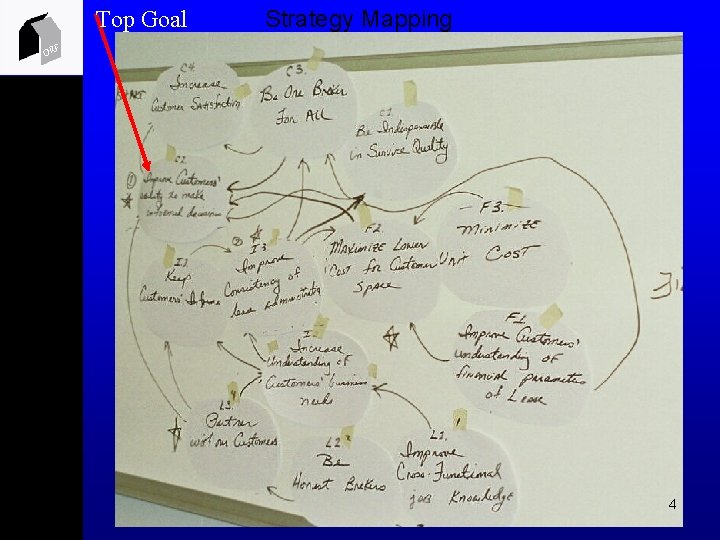 Top Goal
Strategy Mapping
ORF
C4.
Increase
Customer Satisfaction
C3.
Be One Broker
For All
C1
Be Indispensible
in Survice Quality
C2
①
Improve Customers'
ability to make
informed decisions
F3.
Minimize
Unit Cost
F2.
Maximize Lower
Cost for Customer
Space
②
I3
Improve
Consistency of
lease administration
I2
Keep
Customers' Informe
F1.
Improve Customers'
understanding of
financial parameters
of Lease
I1.
Increase
Understanding of
Customers' business
needs
L3.
Partner
with our Customers
L2
Be
Honest Brokers
L1.
Improve
Cross-Functional
job Knowledge
4